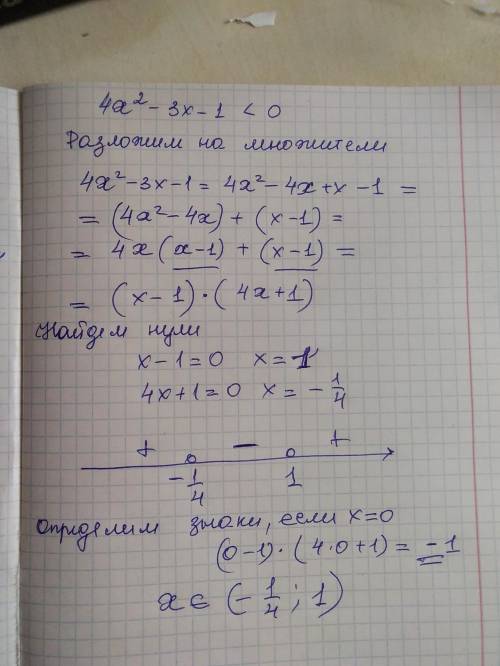 4x² - 3x - 1 < 0
Разложим на множители
4x² - 3x - 1 = 4x² - 4x + x - 1 =
= (4x² - 4x) + (x - 1) =
= 4x (x - 1) + (x - 1) =
= (x - 1) · (4x + 1)
Найдем нули
x - 1 = 0 x = 1
4x + 1 = 0 x = - 1/4
+ − +
- 1/4 1
Определим знаки, если x = 0
(0 - 1) · (4 · 0 + 1) = - 1
x ∈ (- 1/4 ; 1)